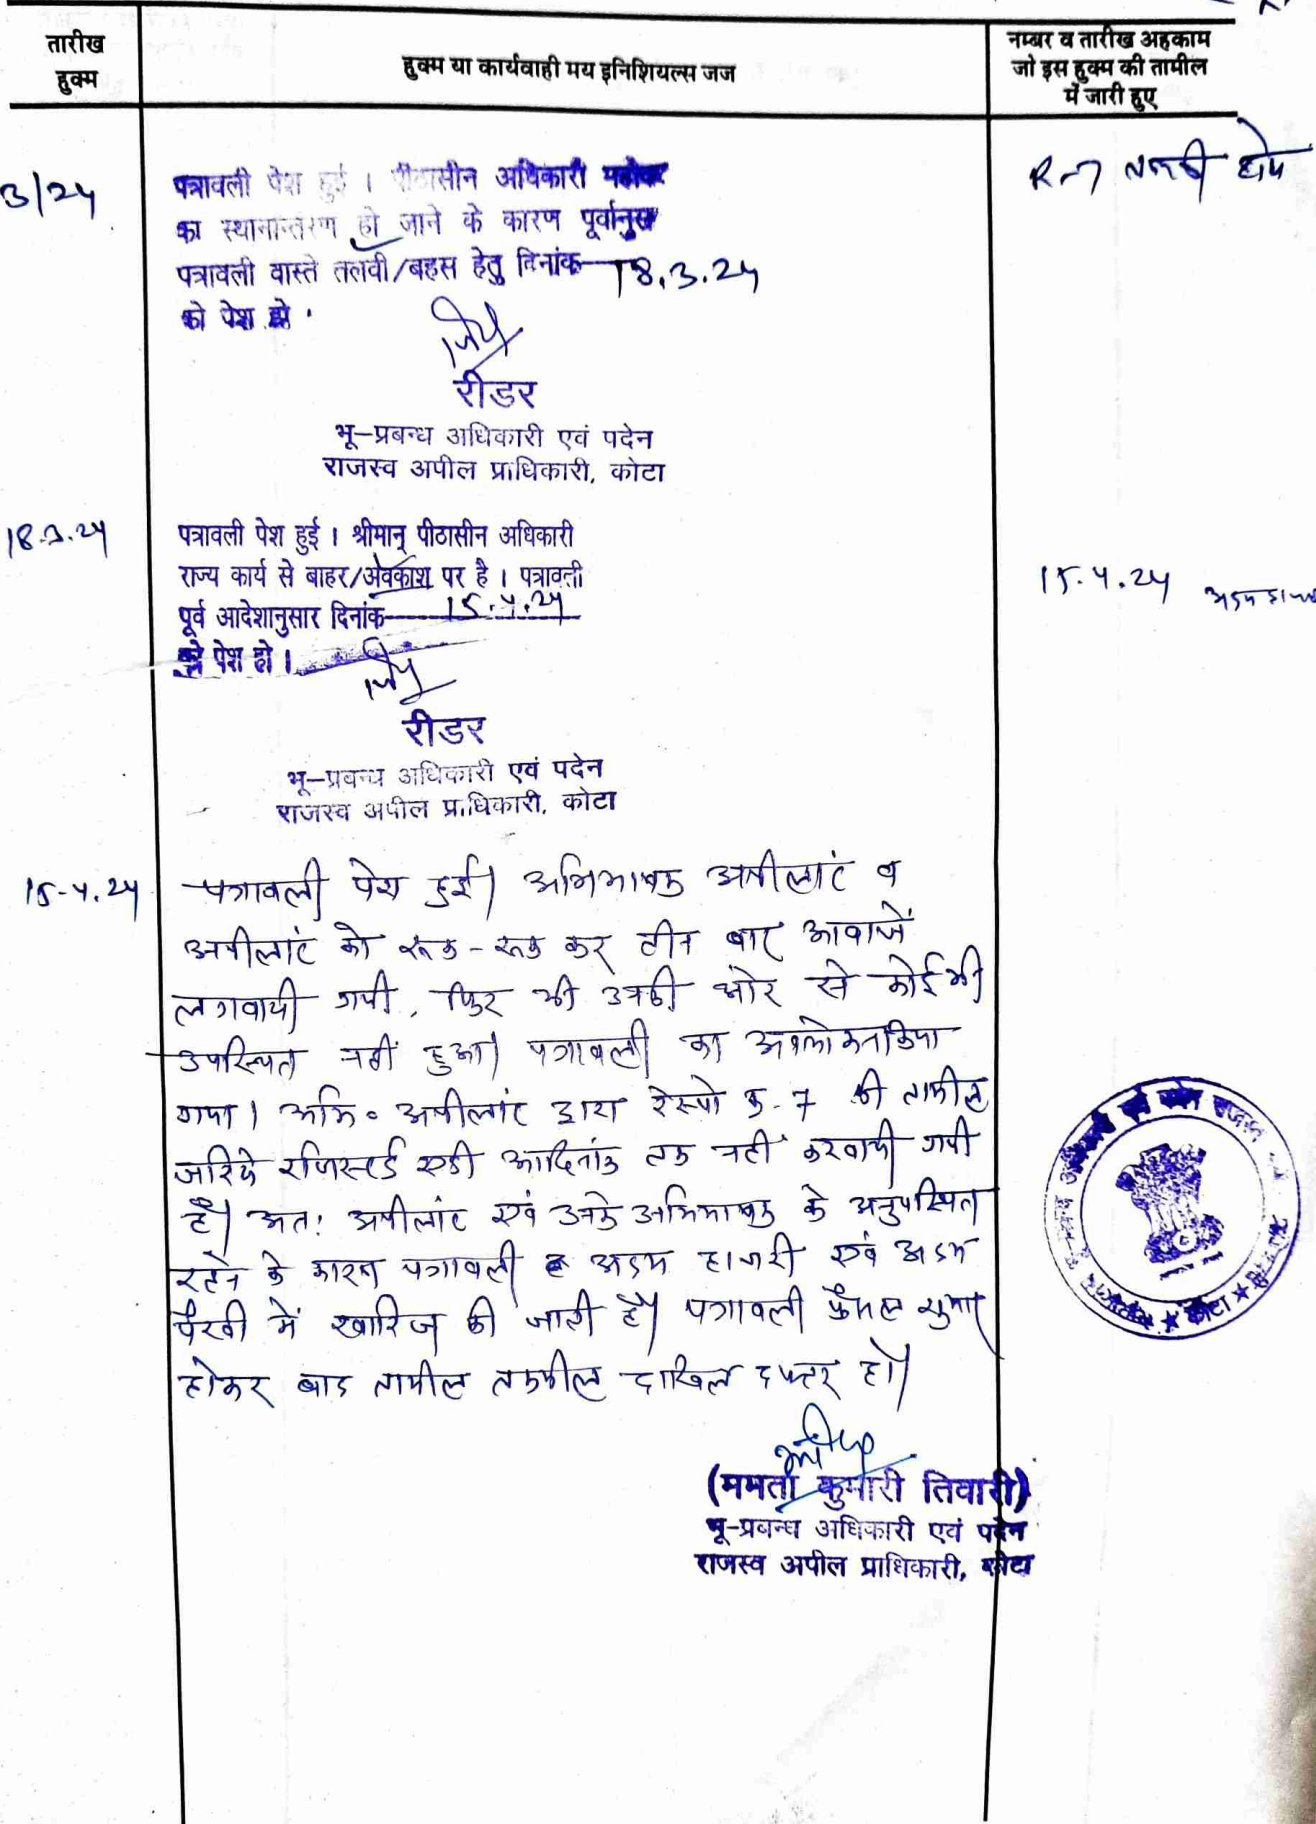 तारीख
हुक्म
हुक्म या कार्यवाही मय इनिशियल्स जज
नम्बर व तारीख अहकाम
जो इस हुक्म की तामील
में जारी हुए
3/24
पत्रावली पेश हुई । पीठासीन अधिकारी महोदय
का स्थानान्तरण हो जाने के कारण पूर्वानुसा
पत्रावली वास्ते तलवी/बहस हेतु दिनांक 18.3.24
को पेश हो ।
R-7 तलबी शेष
रीडर
भू-प्रबन्ध अधिकारी एवं पदेन
राजस्व अपील प्राधिकारी, कोटा
18.3.24
पत्रावली पेश हुई । श्रीमान् पीठासीन अधिकारी
राज्य कार्य से बाहर/अवकाश पर है । पत्रावली
पूर्व आदेशानुसार दिनांक 15.4.24
को पेश हो ।
15.4.24
रीडर
भू-प्रबन्ध अधिकारी एवं पदेन
राजस्व अपील प्राधिकारी, कोटा
15-4.24
पत्रावली पेश हुई। अभिभाषक अपीलांट व
अपीलांट को रूक-रूक कर तीन बार आवाजें
लगवायी गयी, फिर भी उनकी ओर से कोई भी
उपस्थित नहीं हुआ। पत्रावली का अवलोकन किया
गया। अभि० अपीलांट द्वारा रेस्पो क्र-7 की तामील
जरिये रजिस्टर्ड एडी आदिनांक तक नहीं करवायी गयी
है। अत: अपीलांट एवं उनके अभिभाषक के अनुपस्थित
रहने के कारण पत्रावली अदम हाजरी एवं अदम
पैरवी में खारिज की जाती है। पत्रावली फैसल शुमार
होकर बाद तामील तकमील दाखिल दफ्तर हो।
(ममता कुमारी तिवारी)
भू-प्रबन्ध अधिकारी एवं पदेन
राजस्व अपील प्राधिकारी, कोटा
कोटा